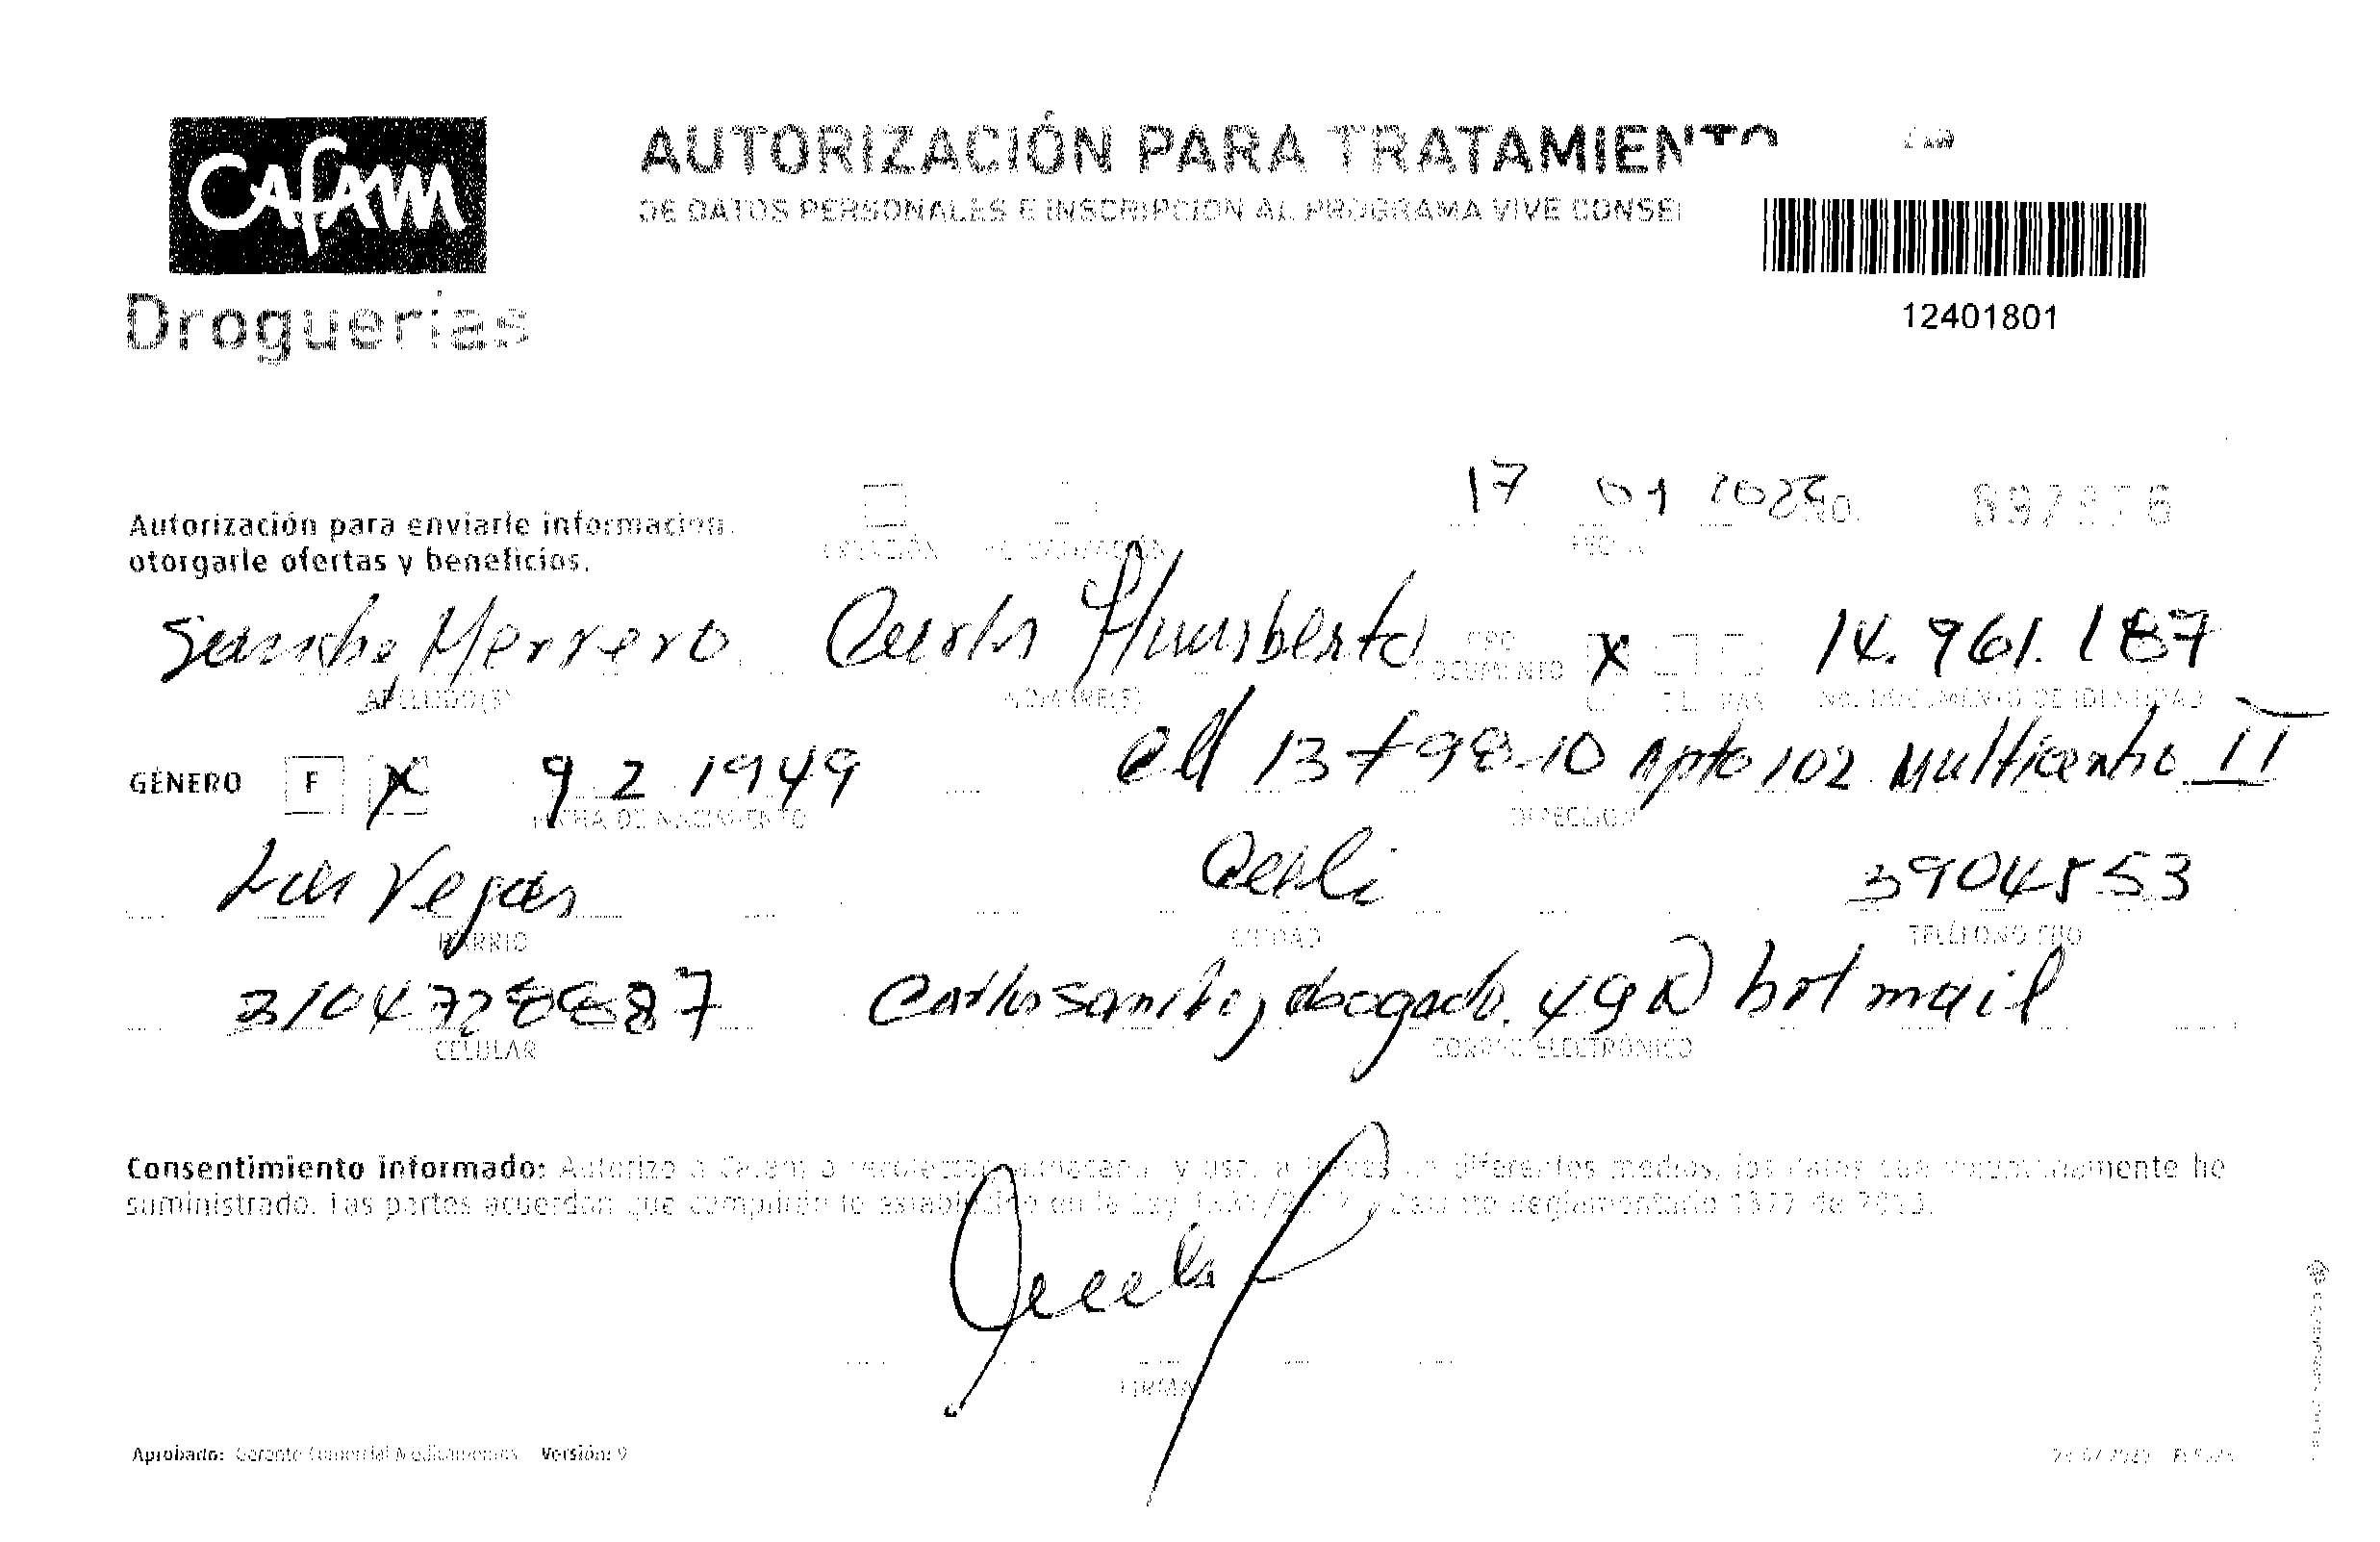 CAFAM
Droguerías
AUTORIZACIÓN PARA TRATAMIENTO
DE DATOS PERSONALES E INSCRIPCIÓN AL PROGRAMA VIVE CONSE
12401801
Autorización para enviarle información,
otorgarle ofertas y beneficios.
17 01 202 NO.
FECHA
Sanchez Herrero Carlos Humberto DOCUMENTO X 14.961.187
APELLIDO(S) NOMBRE(S) No. DOCUMENTO DE IDENTIDAD
GÉNERO F X 9 2 1949 Cll 13 # 98-10 Apto 102 Multicentro II
FECHA DE NACIMIENTO DIRECCIÓN
Las Vegas Cali 3904553
BARRIO CIUDAD TELÉFONO FIJO
Carlos sanchez abogado.49@hotmail
CELULAR CORREO ELECTRÓNICO
Consentimiento informado: Autorizo a Cafam a recolectar, almacenar y usar a través de diferentes medios, los datos que voluntariamente he
suministrado. Las partes acuerdan que cumplirán lo establecido en la Ley y Decreto Reglamentario 1377 de 2013.
FIRMA
Aprobado: Gerente Comercial Medicamentos Versión: 9